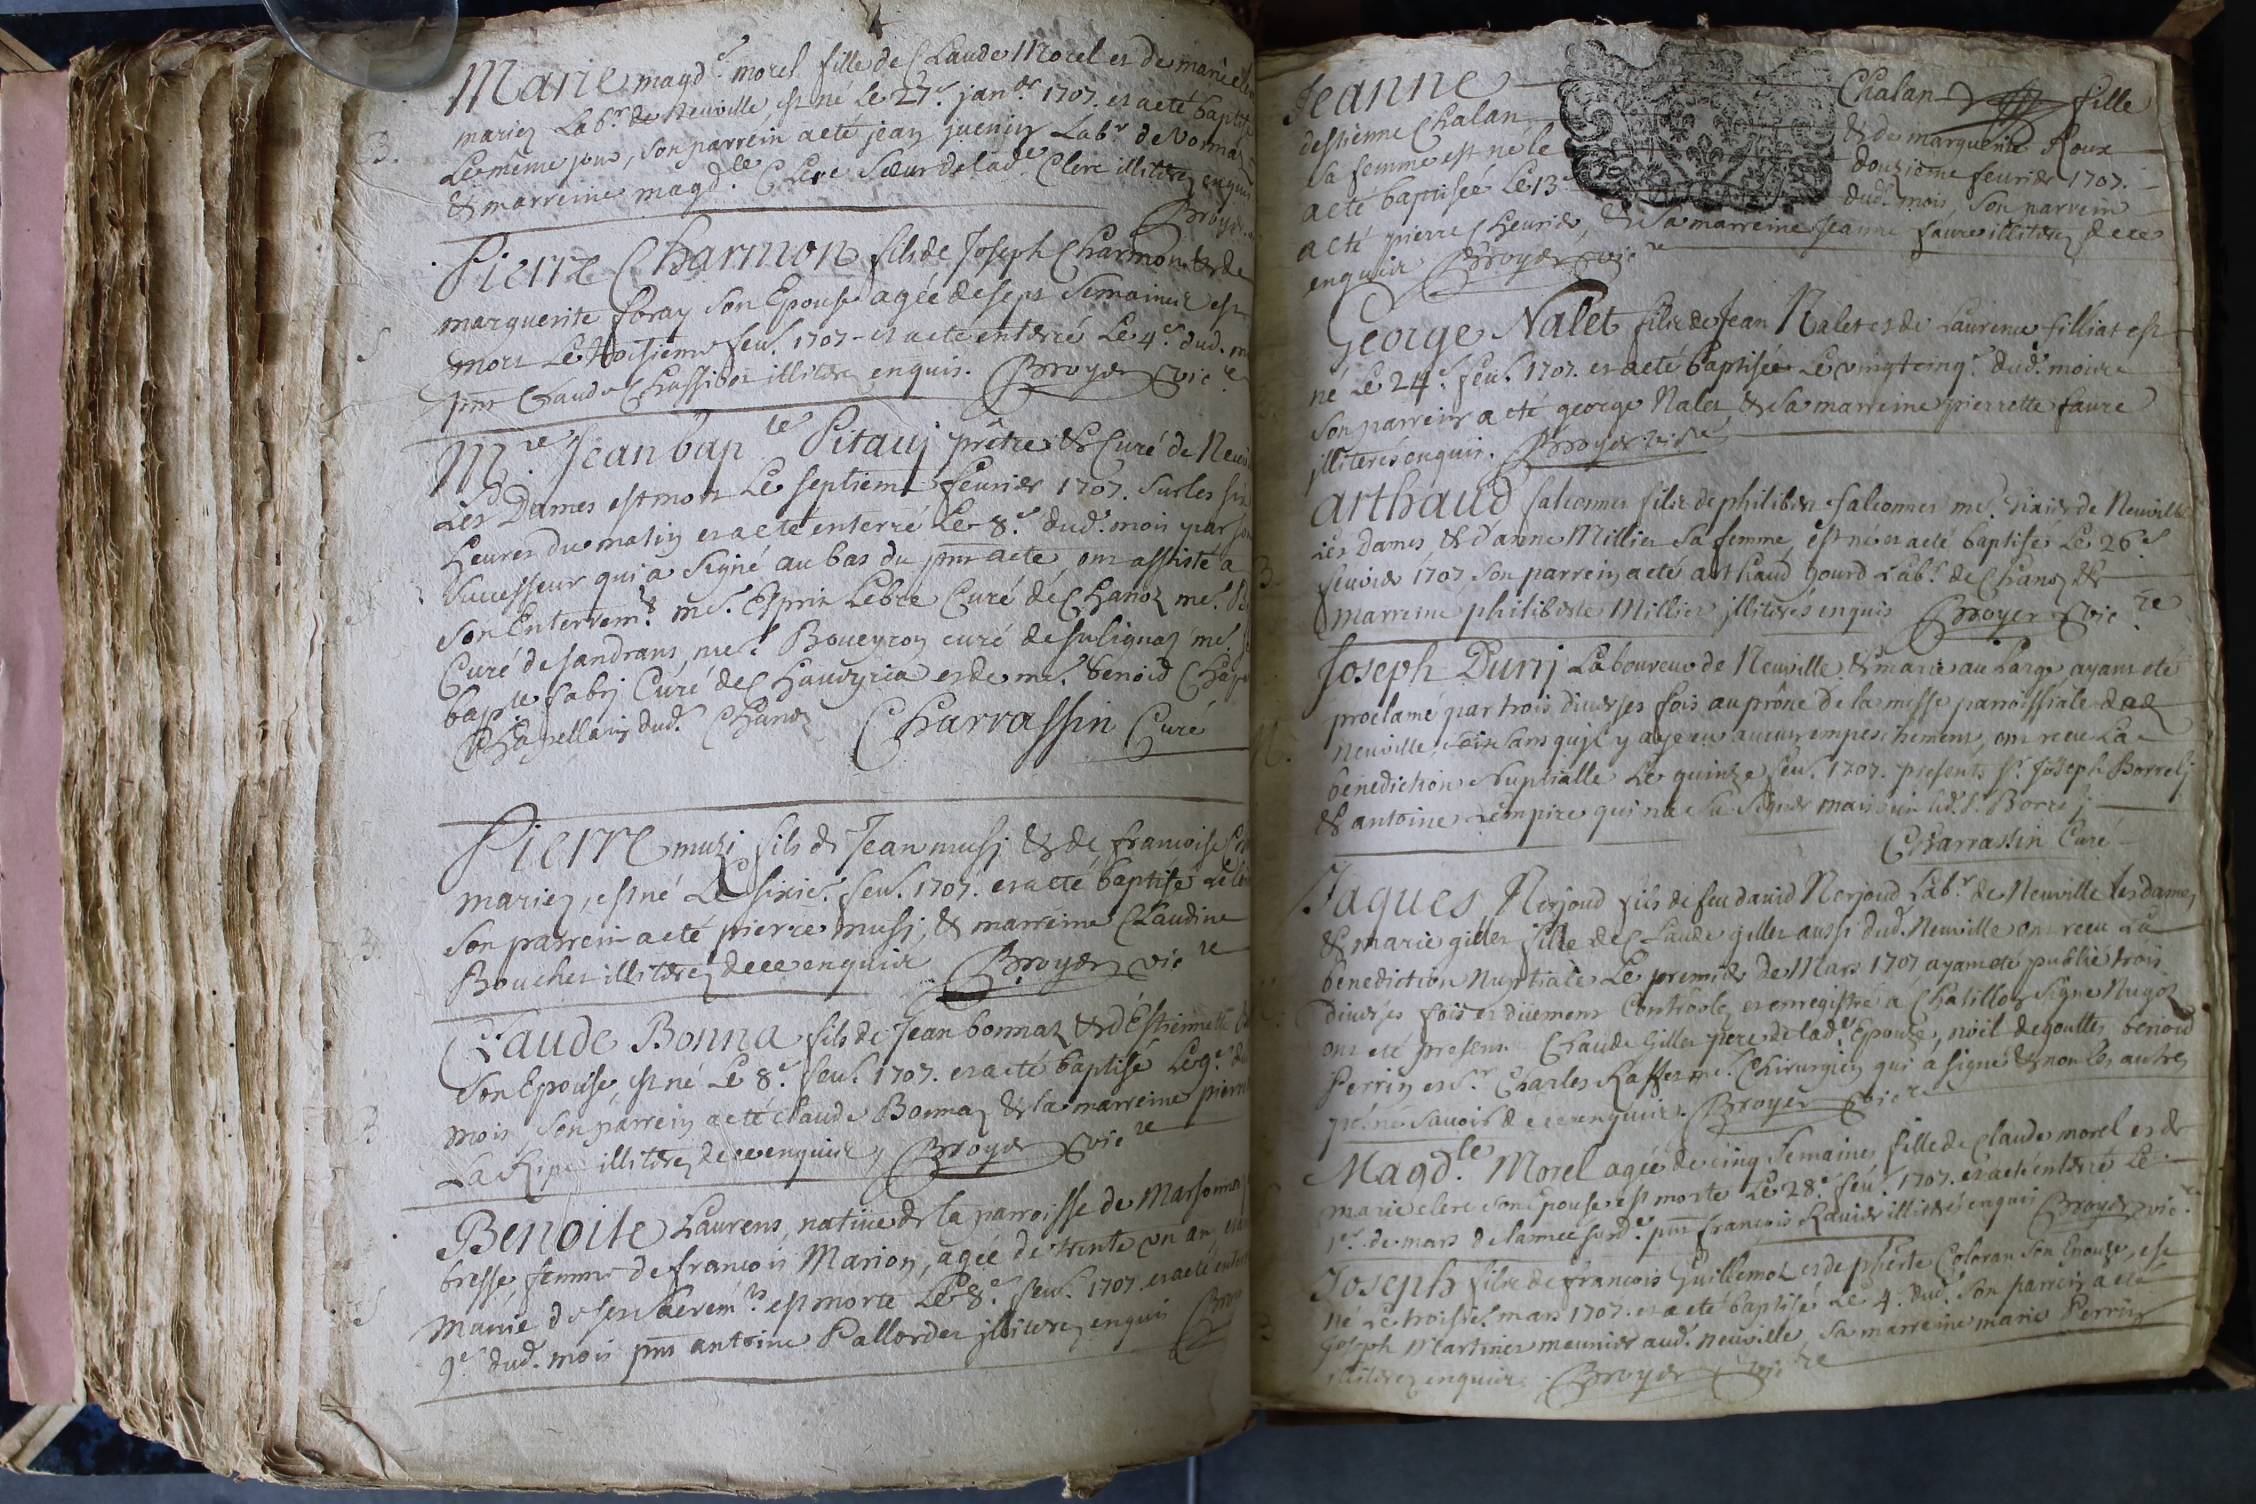 Marie magd.e morel fille de Claude Morel et de marie
mariez Lab.r de Neuville, est né Le 27.e jan.er 1707. et a eté baptisé
Le même jour, son parrein a eté jean juenin Lab.r de
& marreine magd.le Clere sœur de lad.e Clere illiterez enquis
Broyer
B.
Pierre Charmon fils de Joseph Charmon & de
marguerite foray son Epouse agée de sept semaines est
mort Le troisieme feu. 1707 - et a eté enterré Le 4.e dud. m
pnt Claude Chassibot illiterez enquis. Broyer vic.re
S
M.re Jean bap.te Pitauj prêtre & Curé de Neuv
Les Dames est mort Le septieme feurier 1707. sur les six
heures du matin et a eté enterré Le 8.e dud. mois par son
successeur qui a signé au bas du pnt acte, ont assisté a
son Enterrem.t me. Esprit Lebre Curé de Chanoz me.
Curé de sandrans, me. Boueyron curé de sulignaz me.
bap.te fabrj Curé de Chaveyria et de me. benoid Cha
Chapellain dud. Chanoz Charrassin Curé
Pierre muzi fils de Jean mussj & de francoise
mariez, est né Le sixie. feu. 1707. et a eté baptisé Le
son parrein a eté pierre mussj, & marreine Claudine
Boucher illiterez de ce enquis Broyer vic.re
B.
Claude Bonna fils de Jean bonnaz & d'Estiennette
son Epouse, est né Le 8.e feu. 1707. et a eté baptisé Le 9.e du
mois, son parrein a eté Claude Bonnaz & la marreine pierre
La Ripe illiterez de ce enquis, Broyer vic.re
B.
Benoite Laurens, natiue de la parroisse de Marsonnaz
bresse, femme de francois Marion, agée de trente un an, et a
munie de ses sacrem.ts est morte Le 8.e feu. 1707. et a eté enterré
9.e dud. mois pnt antoine Pallordet illiterez enquis Broy
S
Jeanne Chalan fille
d'estienne Chalan & de marguerite Roux
sa femme est né le douzieme feurier 1707.
a eté baptisée Le 13.e dud. mois, son parrein
a eté pierre Cheurier, & sa marreine Jeanne faure illiterez de ce
enquis Broyer vic.re
George Nalet fils de Jean Nalet et de Laurence filliat est
né Le 24.e feu. 1707. et a eté baptisée Le vingt cinq.e dud. mois
son parrein a eté george Nalet & sa marreine pierrette faure
illiterés enquis. Broyer vic.re
arthaud falconnet fils de philibert falconnet me. de Neuville
Les Dames, & d'anne Millier sa femme, est né et a eté baptisé Le 26.e
feurier 1707 son parrein a eté arthaud gourd Lab.r de Chanoz &
marreine philiberte Millier illiterés enquis Broyer vic.re
B
Joseph Durij Laboureur de Neuville & marie au Large, ayant eté
proclamé par trois diuerses fois au prône de la messe parroissiale dud
neuville, sans qu'il y aye eu aucun empeschement, ont receu La
benediction Nuptialle Le quinze feu. 1707. presents s.r Joseph Borrelj
& antoine Lempire qui n'a su signer mais bien led. s. Borrelj
Charrassin Curé
Jaques Norjoud fils de feu dauid Norjoud Lab.r de Neuville les dames
& marie gillet fille de Claude gillet aussi dud. Neuville ont receu La
benediction Nuptiale Le premier de Mars 1707 ayant eté publié trois
diuerses fois et dûement Controolez et enregistré a Chatillon signé Nugoz
ont eté present Claude Gillet pere de lad.e Epouse, noël degoutte, benoid
Perrin et s.r Charles Raffet me. Chirurgien qui a signé & non les autres
p.r ne savoir de ce enquis. Broyer vic.re
Magd.le Morel agée de cinq semaines fille de Claude morel et de
marie clere son Epouse est morte Le 28.e feu. 1707. et a eté enterré Le
1.er de mars de l'année susd.e pnt françois Rauier illiteré enquis Broyer vic.re
Joseph fils de francois Guillemot et de pierrette Coloran son Epouse, est
né Le troisie. mars 1707. et a eté baptisé Le 4. dud. son parrein a eté
Joseph Martinet meunier aud. neuville, sa marreine marie Perrin
illiterez enquis. Broyer vic.re